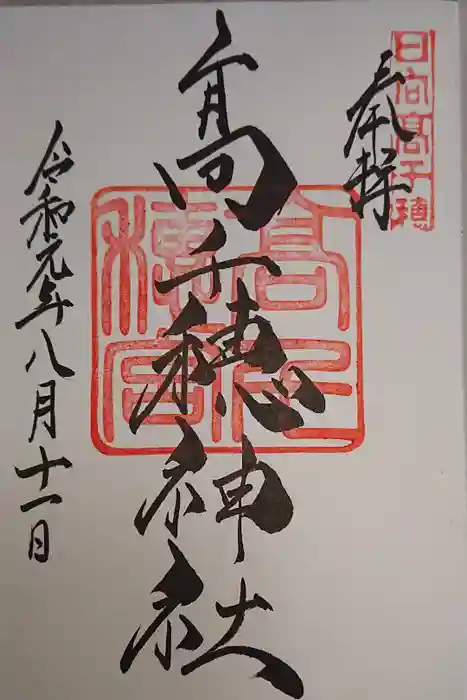 日向高千穂
奉拝
髙千穂神社
令和元年八月十一日